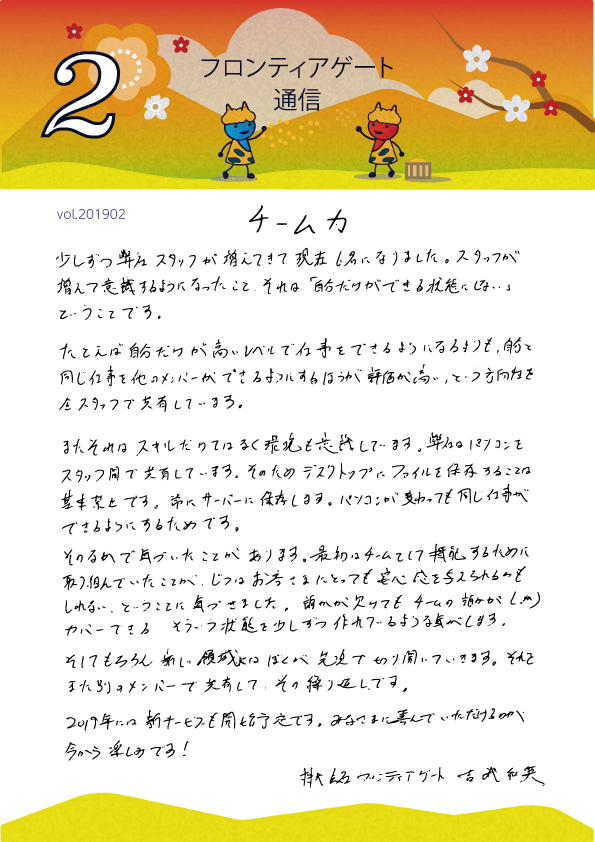 2
フロンティアゲート
通信
vol.201902
チーム力
少しずつ弊社スタッフが増えてきて現在6名になりました。スタッフが
増えて意識するようになったこと、それは「自分だけができる状態にしない」
ということです。
たとえば自分だけが高いレベルで仕事をできるようになるよりも、自分と
同じ仕事を他のメンバーができるようにするほうが評価が高い、という方向性を
全スタッフで共有しています。
またそれはスキルだけではなく環境も意識しています。弊社はパソコンを
スタッフ間で共有しています。そのためデスクトップにファイルを保存することは
基本禁止です。常にサーバーに保存します。パソコンが変わっても同じ仕事が
できるようにするためです。
そのなかで気づいたことがあります。最初はチームとして機能するために
取り組んでいたことが、じつはお客さまにとっても安心感を与えられるかも
しれない、ということに気づきました。誰かが欠けてもチームの誰かが
カバーできる そういう状態を少しずつ作れているような気がします。
そしてもちろん新しい領域にはぼくが先頭で切り開いていきます。それを
また別のメンバーで共有して、その繰り返しです。
2019年には新サービスも開始予定です。みなさまに喜んでいただけるのが
今から楽しみです！
株式会社フロンティアゲート 吉武和英